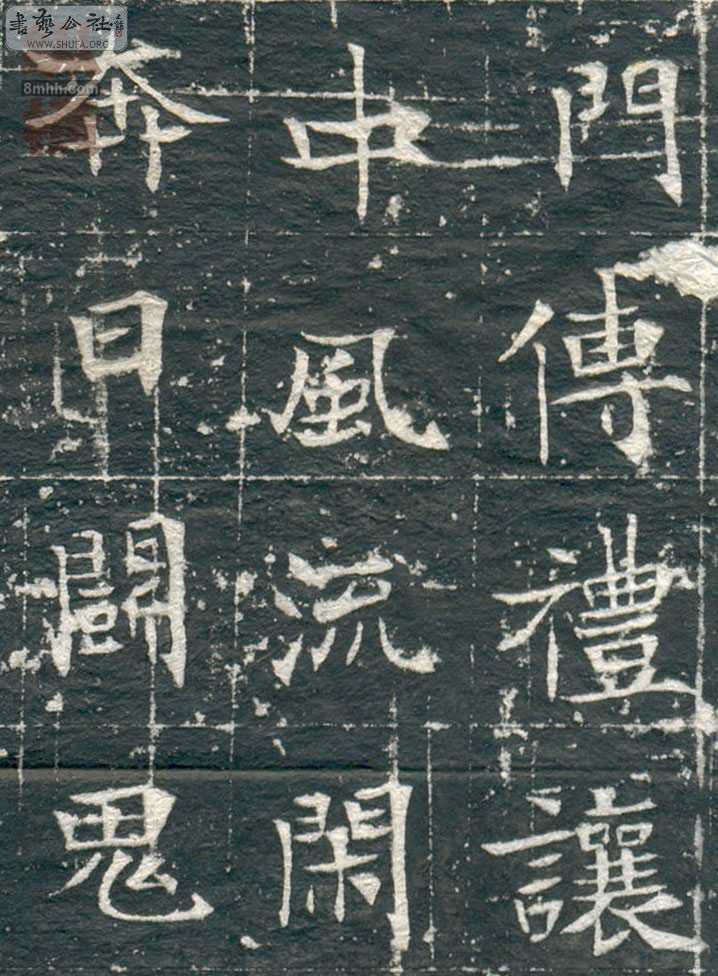 書藝公社
WWW.SHUFA.ORG
8mhh.com
門傳禮讓
中風流閑
奔日鬼